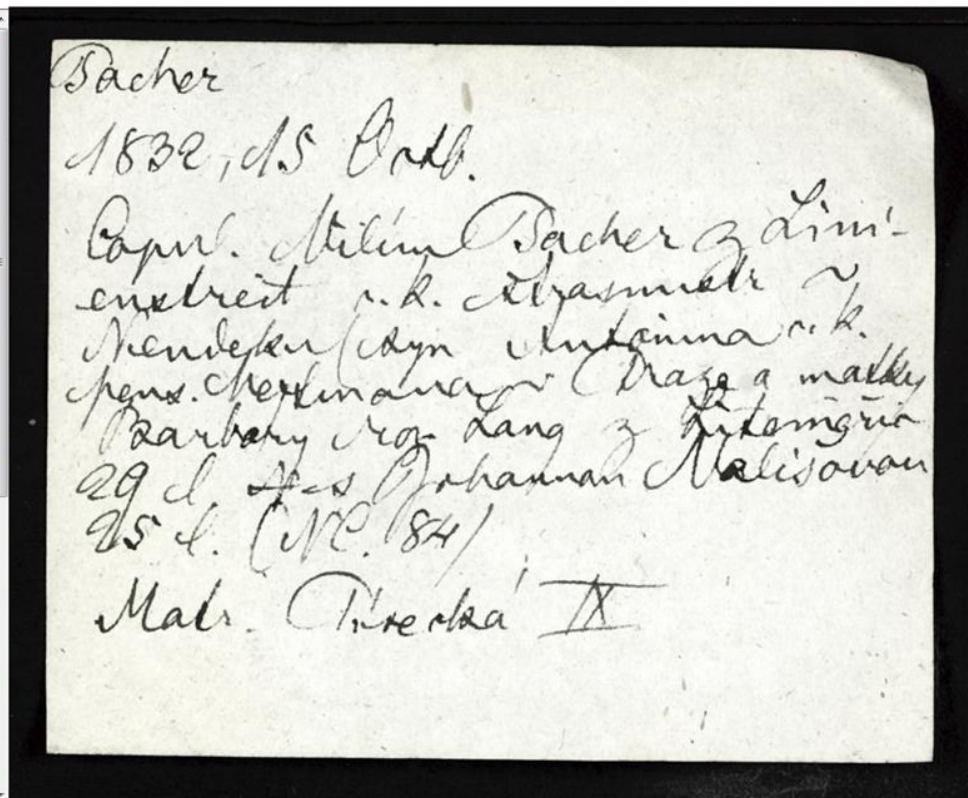 Bacher
1832, 15 Octb.
Copul. Vilém Bacher z Lini-
enstreit c.k. Strasmistr v
Nendeku (syn Antonina c.k.
pens. Hertmana v Praze a matky
Barbory roz. Lang z Litoměřic
29 l. s Johannan Malisovau
25 l. (NC. 84)
Matr. Písecká IX